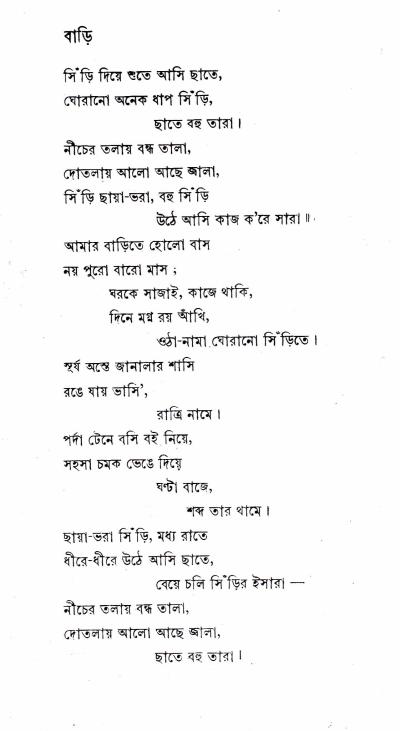 বাড়ি
সিঁড়ি দিয়ে শুতে আসি ছাতে,
ঘোরানো অনেক ধাপ সিঁড়ি,
ছাতে বহু তারা।
নীচের তলায় বন্ধ তালা,
দোতলায় আলো আছে জ্বালা,
সিঁড়ি ছায়া-ভরা, বহু সিঁড়ি
উঠে আসি কাজ ক'রে সারা॥
আমার বাড়িতে হোলো বাস
নয় পুরো বারো মাস ;
ঘরকে সাজাই, কাজে থাকি,
দিনে মগ্ন রয় আঁখি,
ওঠা-নামা ঘোরানো সিঁড়িতে।
সূর্য অস্তে জানালার শাসি
রঙে যায় ভাসি',
রাত্রি নামে।
পর্দা টেনে বসি বই নিয়ে,
সহসা চমক ভেঙে দিয়ে
ঘণ্টা বাজে,
শব্দ তার থামে।
ছায়া-ভরা সিঁড়ি, মধ্য রাতে
ধীরে-ধীরে উঠে আসি ছাতে,
বেয়ে চলি সিঁড়ির ইসারা —
নীচের তলায় বন্ধ তালা,
দোতলায় আলো আছে জ্বালা,
ছাতে বহু তারা।